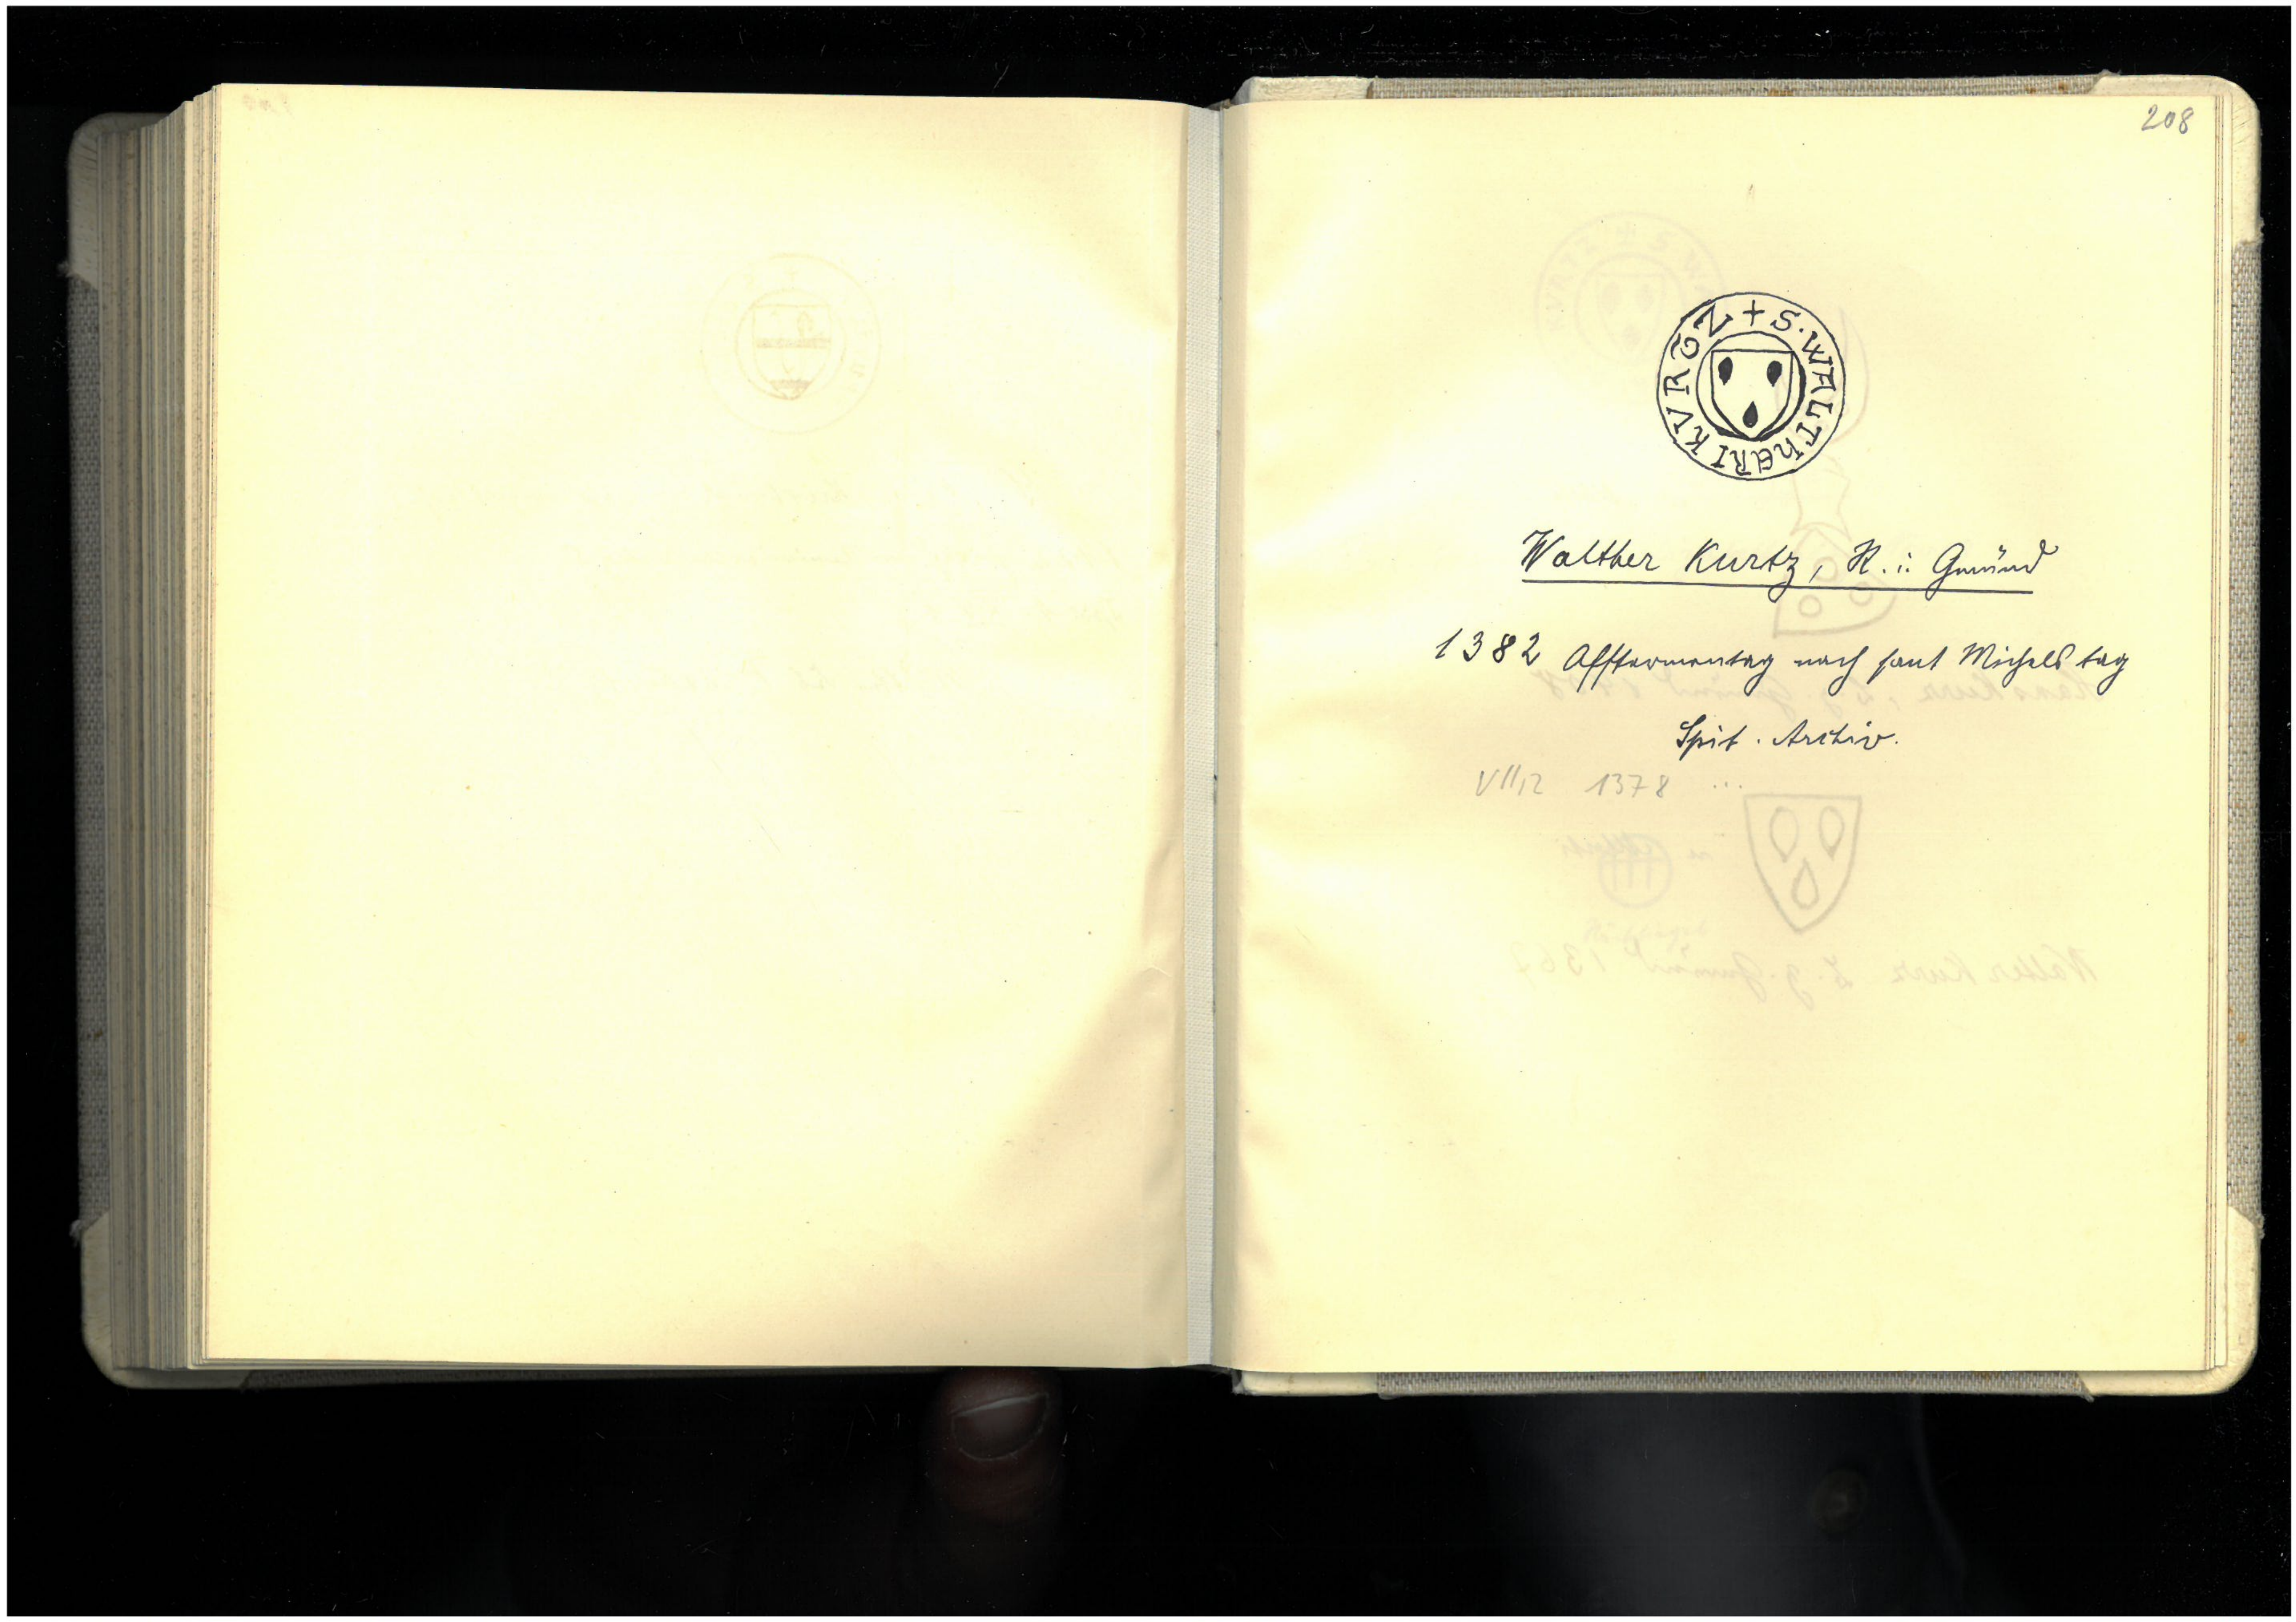 208
+ S. WALTHERI KVRCZ
Walther Kurtz, R. i. Gmünd
1382 Afftermontag nach sant Michels tag
Spit. Archiv.
VII,2 1378 ...